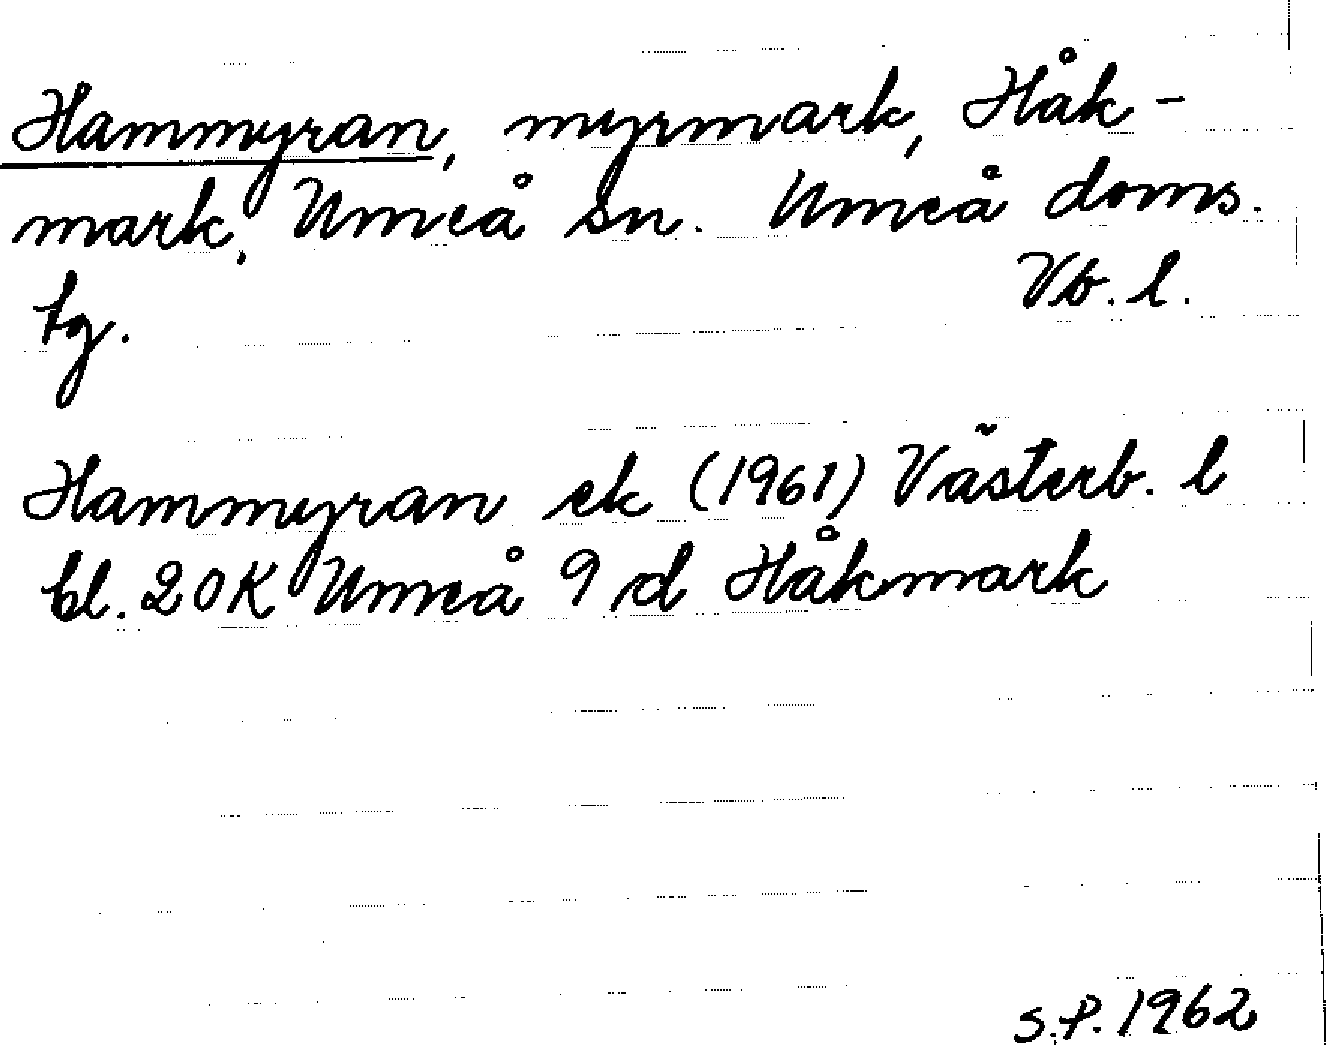 Hammyran, myrmark, Håk-
mark, Umeå sn. Umeå doms.
tg. Vb. l.
Hammyran ek (1961) Västerb. l
bl. 20K Umeå 9 d Håkmark
S.P. 1962